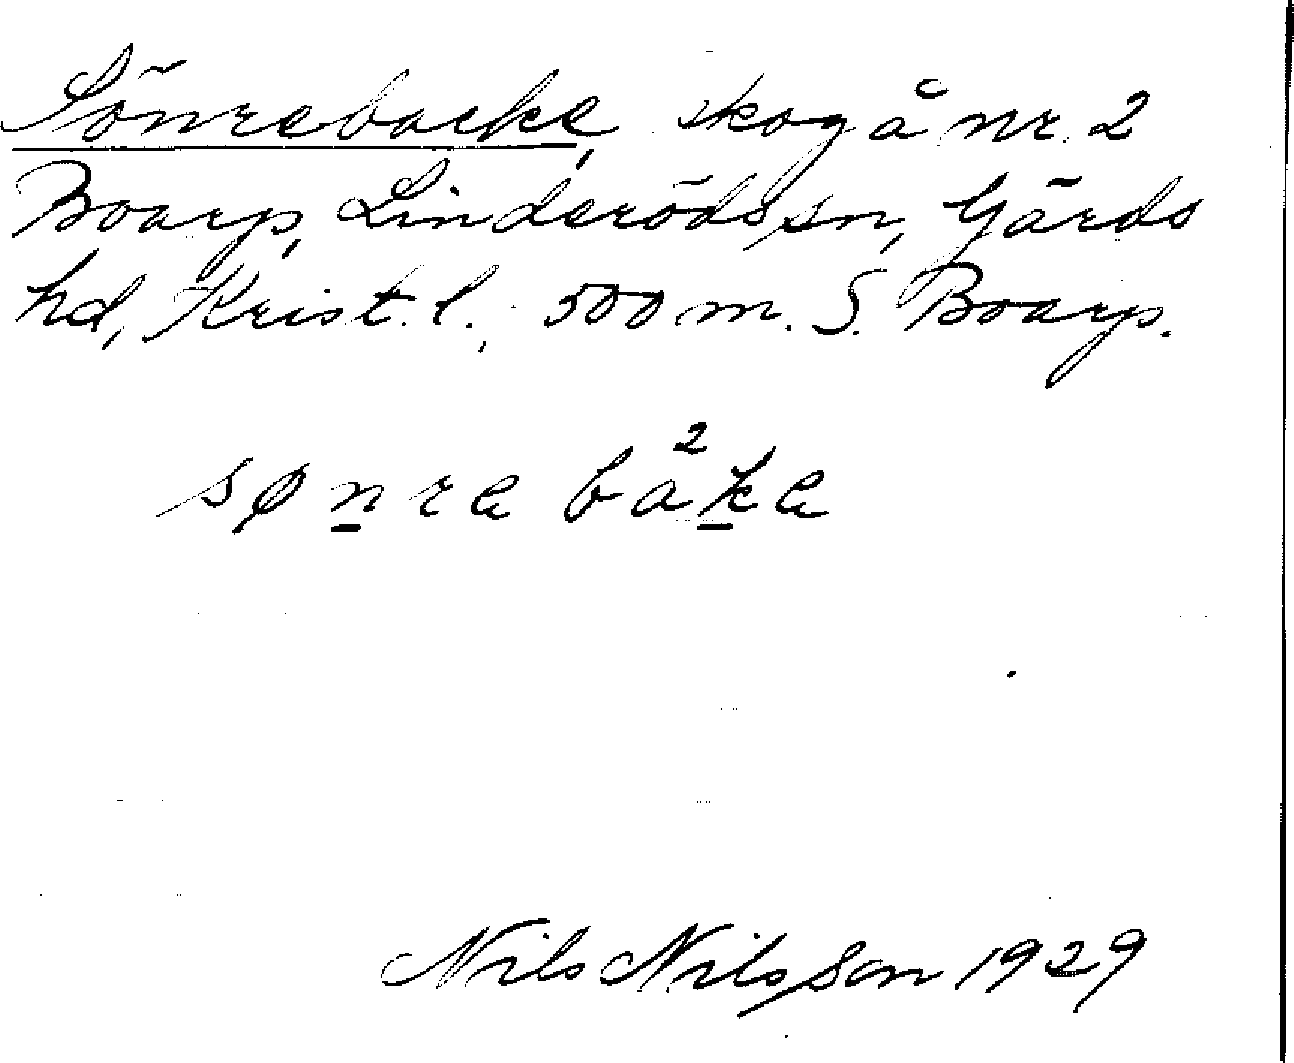 Sönrebacke, skog å nr. 2
Boarp, Linderöds sn, Gärds
hd, Krist. l., 500 m. S. Boarp.
sønre ba²ke
Nils Nilsson 1929